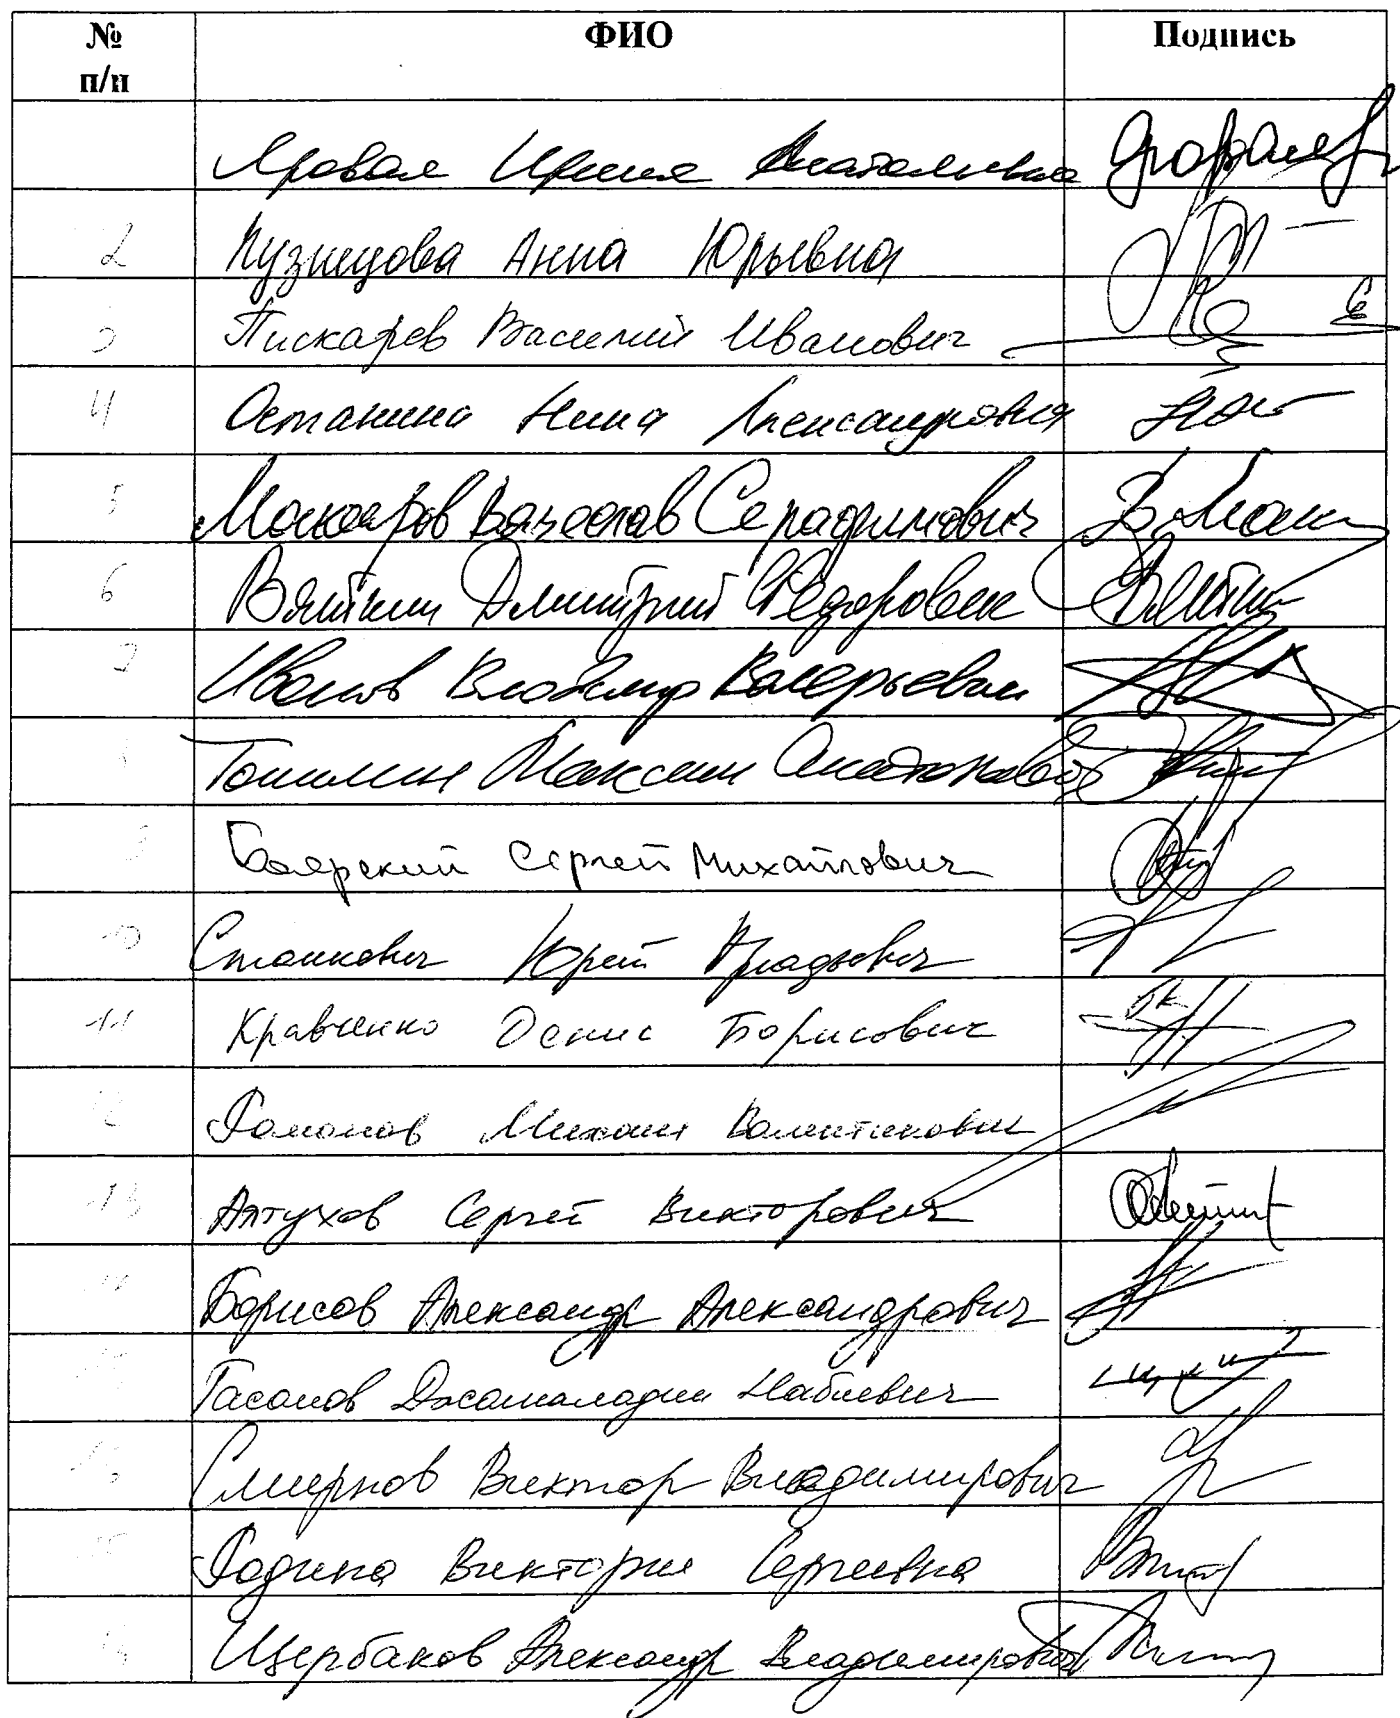 № п/п ФИО Подпись
Яровая Ирина Анатольевна
2 Кузнецова Анна Юрьевна
3 Пискарев Василий Иванович
4 Останина Нина Александровна
5 Макаров Вячеслав Серафимович
6 Вяткин Дмитрий Федорович
7 Иванов Владимир Валерьевич
Топилин Максим Анатольевич
Боярский Сергей Михайлович
10 Станкевич Юрий Аркадьевич
11 Кравченко Денис Борисович
12 Романов Михаил Валентинович
13 Алтухов Сергей Викторович
Борисов Александр Александрович
Гасанов Джамаладин Набиевич
Смирнов Виктор Владимирович
Родина Виктория Сергеевна
Щербаков Александр Владимирович